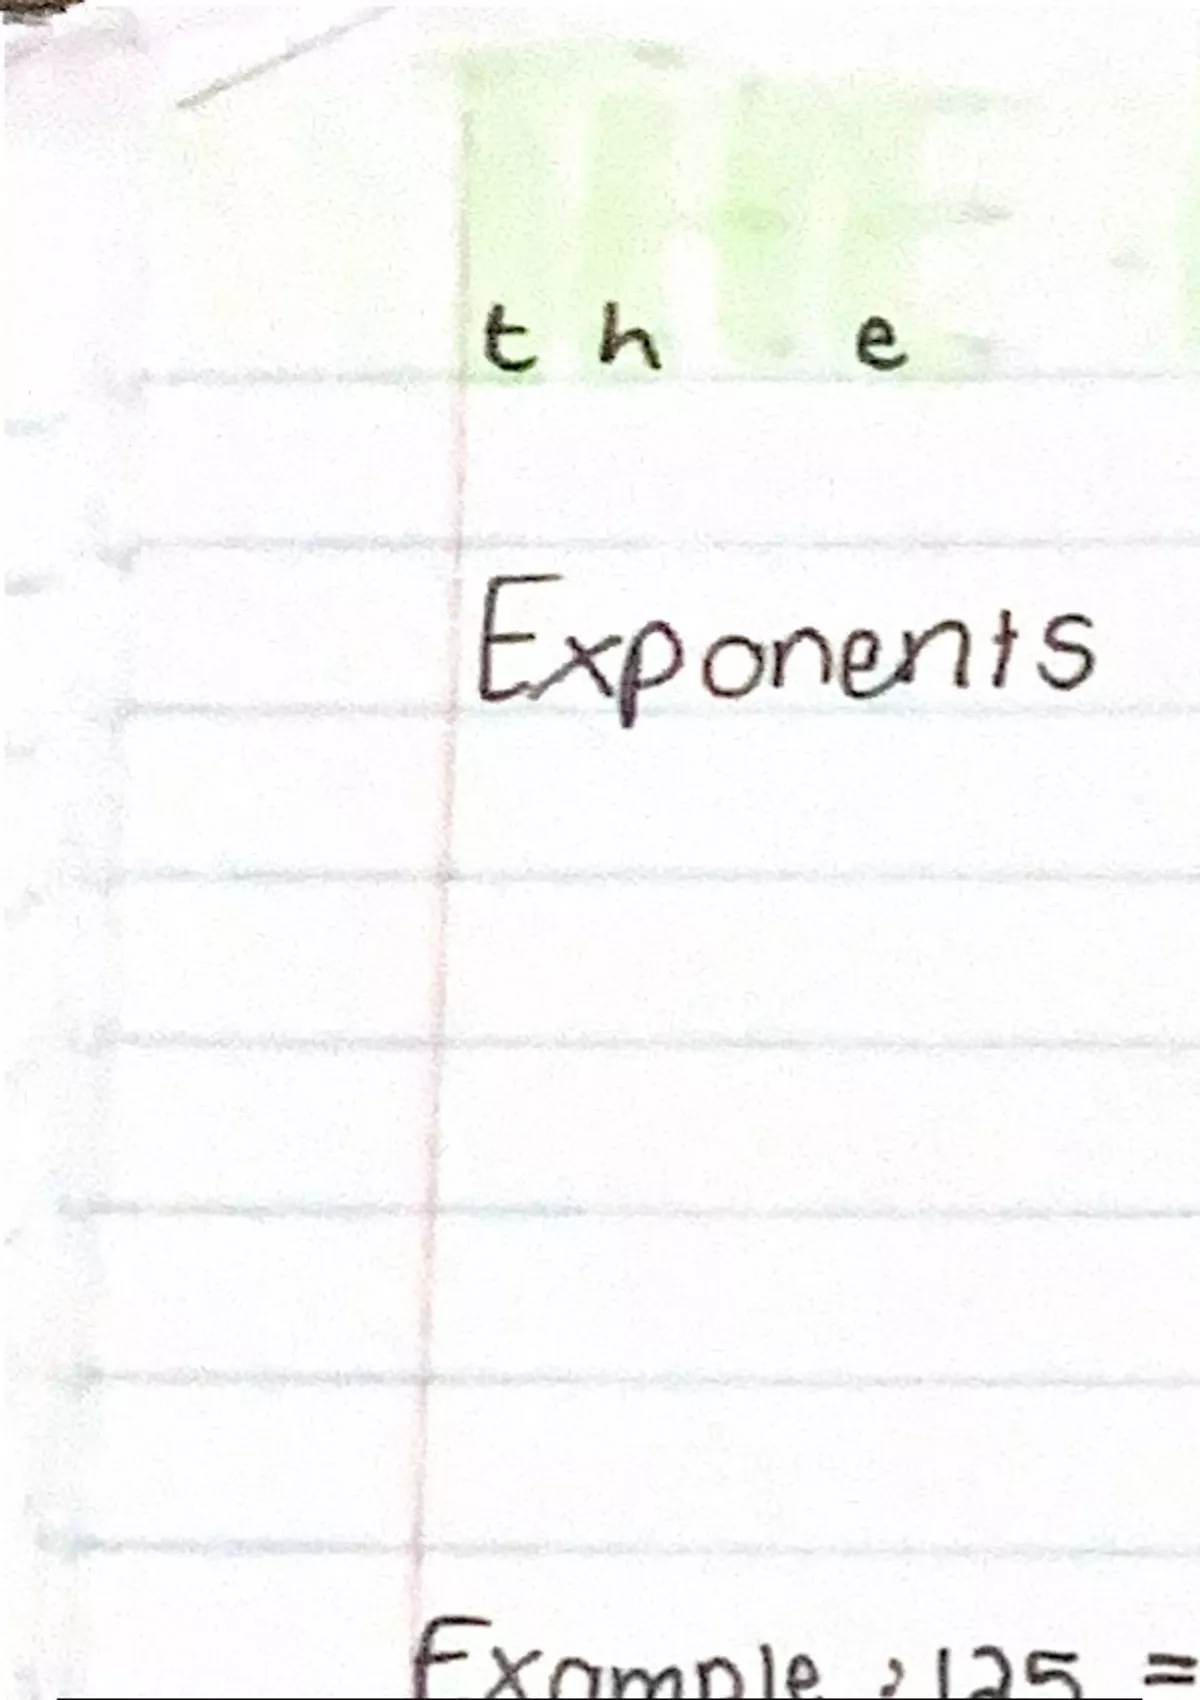 the
Exponents
Example : 125 =